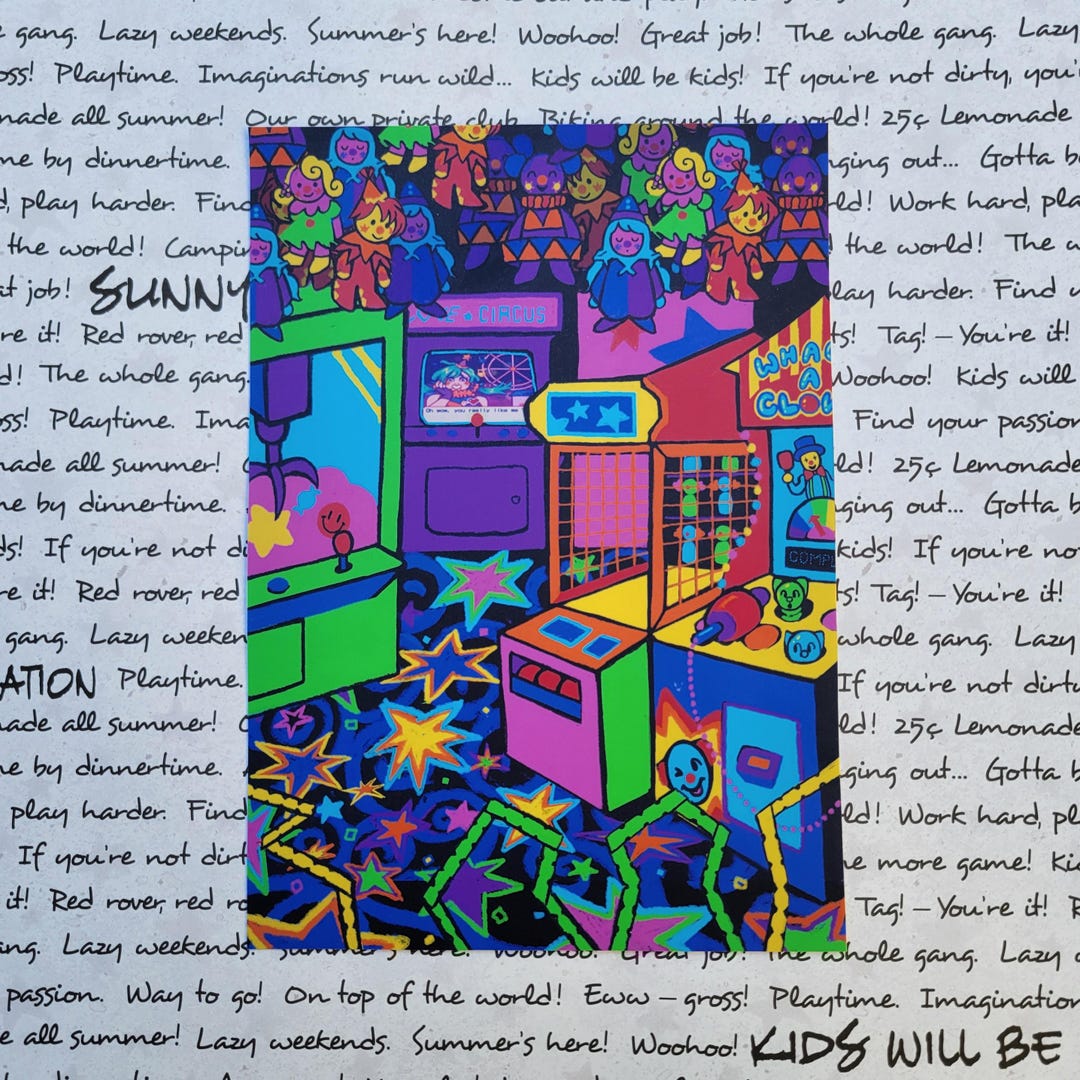 e gang. Lazy weekends. Summer's here! Woohoo! Great job! The whole gang. Lazy
oss! Playtime. Imaginations run wild... Kids will be kids! If you're not dirty, you'r
nade all summer! Our own private club. Biking around the world! 25¢ Lemonade
me by dinnertime. nging out... Gotta b
d, play harder. Find rld! Work hard, pla
the world! Campin the world! The w
at job! SUNNY play harder. Find
CIRCUS
re it! Red rover, red ts! Tag! – You're it!
WHAC
A
CLOW
d! The whole gang. Woohoo! Kids will
Oh wow, you really like me
ss! Playtime. Ima Find your passion
made all summer! ld! 25¢ Lemonade
e by dinnertime. ging out... Gotta b
COMPL
ds! If you're not di kids! If you're no
re it! Red rover, red s! Tag! – You're it!
gang. Lazy weeken whole gang. Lazy
ATION Playtime. If you're not dirt
nade all summer! ld! 25¢ Lemonade
e by dinnertime. ging out... Gotta b
play harder. Find ld! Work hard, pl
If you're not dirt e more game! Ki
it! Red rover, red ro Tag! – You're it! R
ang. Lazy weekends. Summer's here! Woohoo! Great job! The whole gang. Lazy
passion. Way to go! On top of the world! Eww – gross! Playtime. Imagination
e all summer! Lazy weekends. Summer's here! Woohoo! KIDS WILL BE